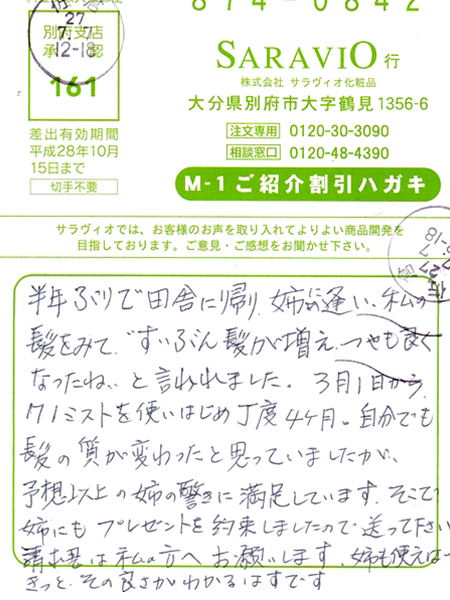 874-0842
27
7.7
12-18
別府支店
承認
161
差出有効期間
平成28年10月
15日まで
切手不要
SARAVIO 行
株式会社 サラヴィオ化粧品
大分県別府市大字鶴見1356-6
注文専用 0120-30-3090
相談窓口 0120-48-4390
M-1ご紹介割引ハガキ
サラヴィオでは、お客様のお声を取り入れてよりよい商品開発を
目指しております。ご意見・ご感想をお聞かせ下さい。
半年ぶりで田舎に帰り、姉に逢い、私の
髪をみて、ずいぶん髪が増え、つやも良く
なったね、と言われました。3月1日から
M1ミストを使いはじめ丁度4ヶ月。自分でも
髪の質が変わったと思っていましたが、
予想以上の姉の驚きに満足しています。そこで
姉にもプレゼントを約束しましたので送って下さい
請求書は私の方へお願いします、姉も使えば
きっと、その良さがわかるはずです